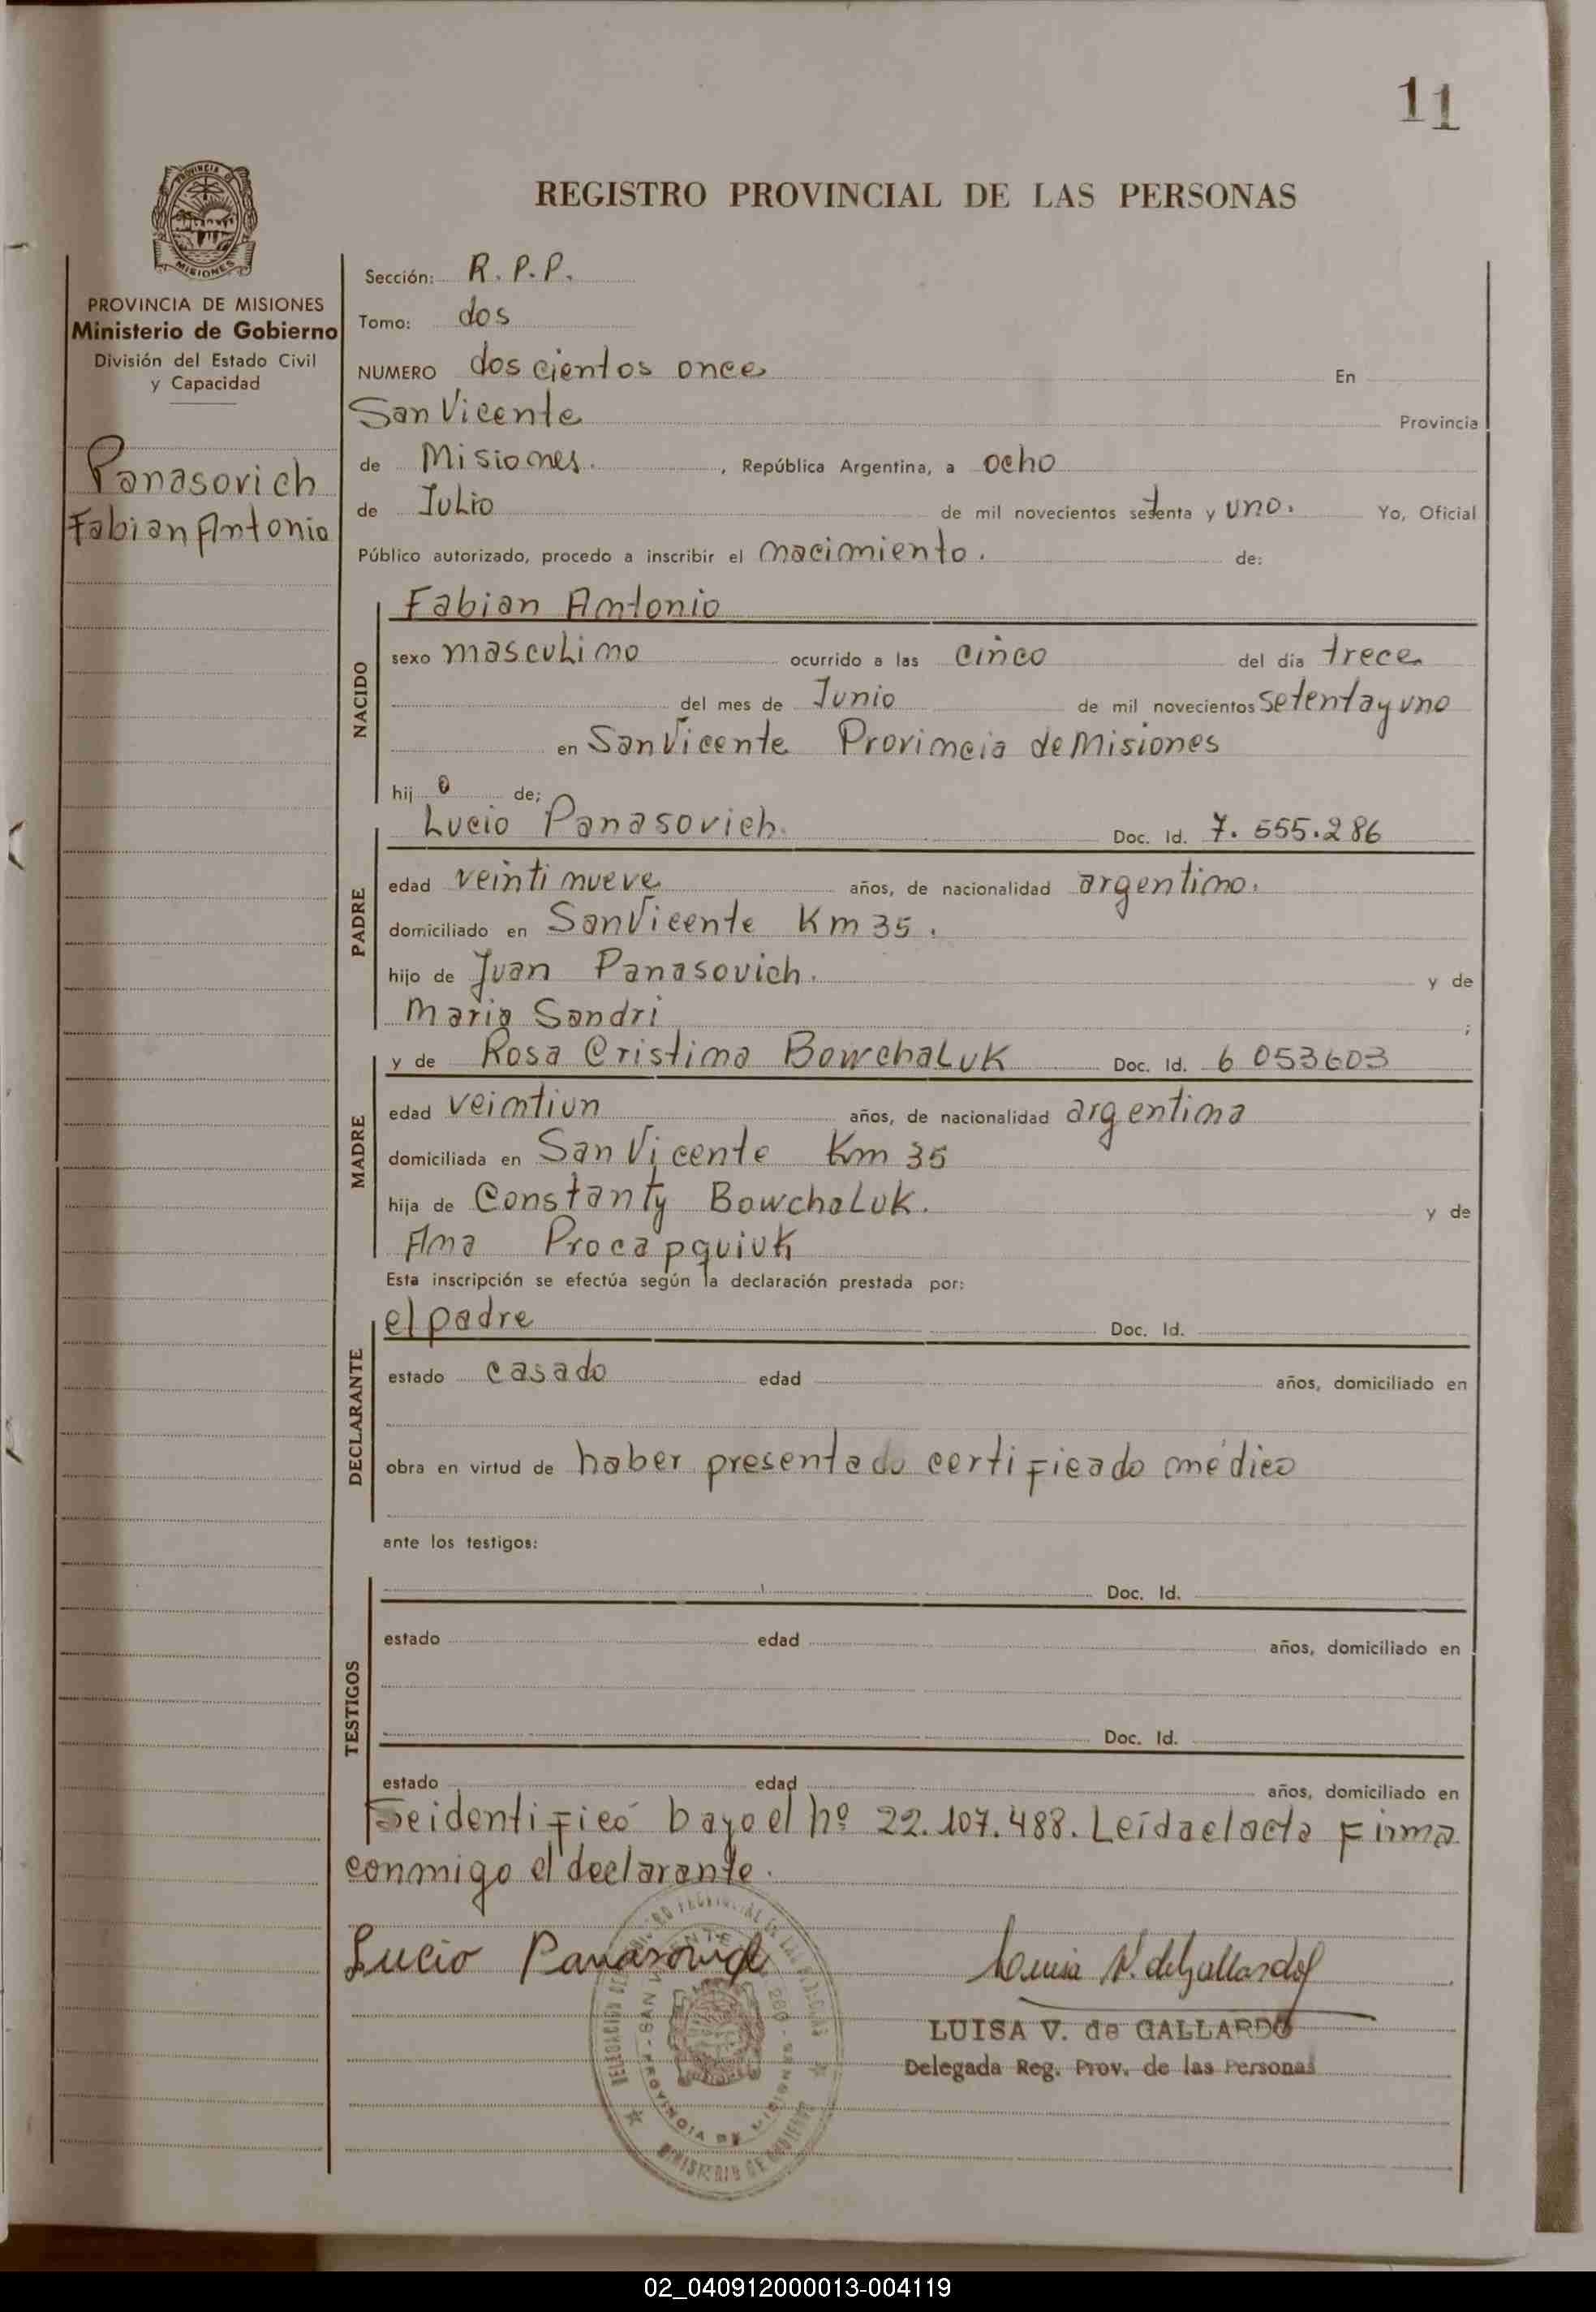 11
REGISTRO PROVINCIAL DE LAS PERSONAS
PROVINCIA DE
MISIONES
PROVINCIA DE MISIONES
Ministerio de Gobierno
División del Estado Civil
y Capacidad
Panasovich
Fabian Antonio
Sección: R. P. P.
Tomo: dos
NUMERO dos cientos once En
San Vicente Provincia
de Misiones. , República Argentina, a ocho
de Julio de mil novecientos setenta y uno. Yo, Oficial
Público autorizado, procedo a inscribir el nacimiento. de:
NACIDO
Fabian Antonio
sexo masculino ocurrido a las cinco del día trece
del mes de Junio de mil novecientos setenta y uno
en San Vicente Provincia de Misiones
hij o de;
PADRE
Lucio Panasovich. Doc. Id. 7.555.286
edad veinti nueve años, de nacionalidad argentino.
domiciliado en San Vicente Km 35.
hijo de Juan Panasovich. y de
Maria Sandri ;
MADRE
y de Rosa Cristina Bowchaluk Doc. Id. 6 053603
edad veintiun años, de nacionalidad argentina
domiciliada en San Vicente Km 35
hija de Constanty Bowchaluk. y de
Ana Procapquiuk
Esta inscripción se efectúa según la declaración prestada por:
DECLARANTE
el padre Doc. Id.
estado casado edad años, domiciliado en
obra en virtud de haber presentado certificado médico
ante los testigos:
TESTIGOS
Doc. Id.
estado edad años, domiciliado en
Doc. Id.
estado edad años, domiciliado en
Se identificó bajo el nº 22.107.488. Leída el acta firma
conmigo el declarante.
Lucio Panasovich
Luisa V. de Gallardo
LUISA V. de GALLARDO
Delegada Reg. Prov. de las Personas
PROVINCIA DE MISIONES
MINISTERIO DE GOBIERNO
02_040912000013-004119